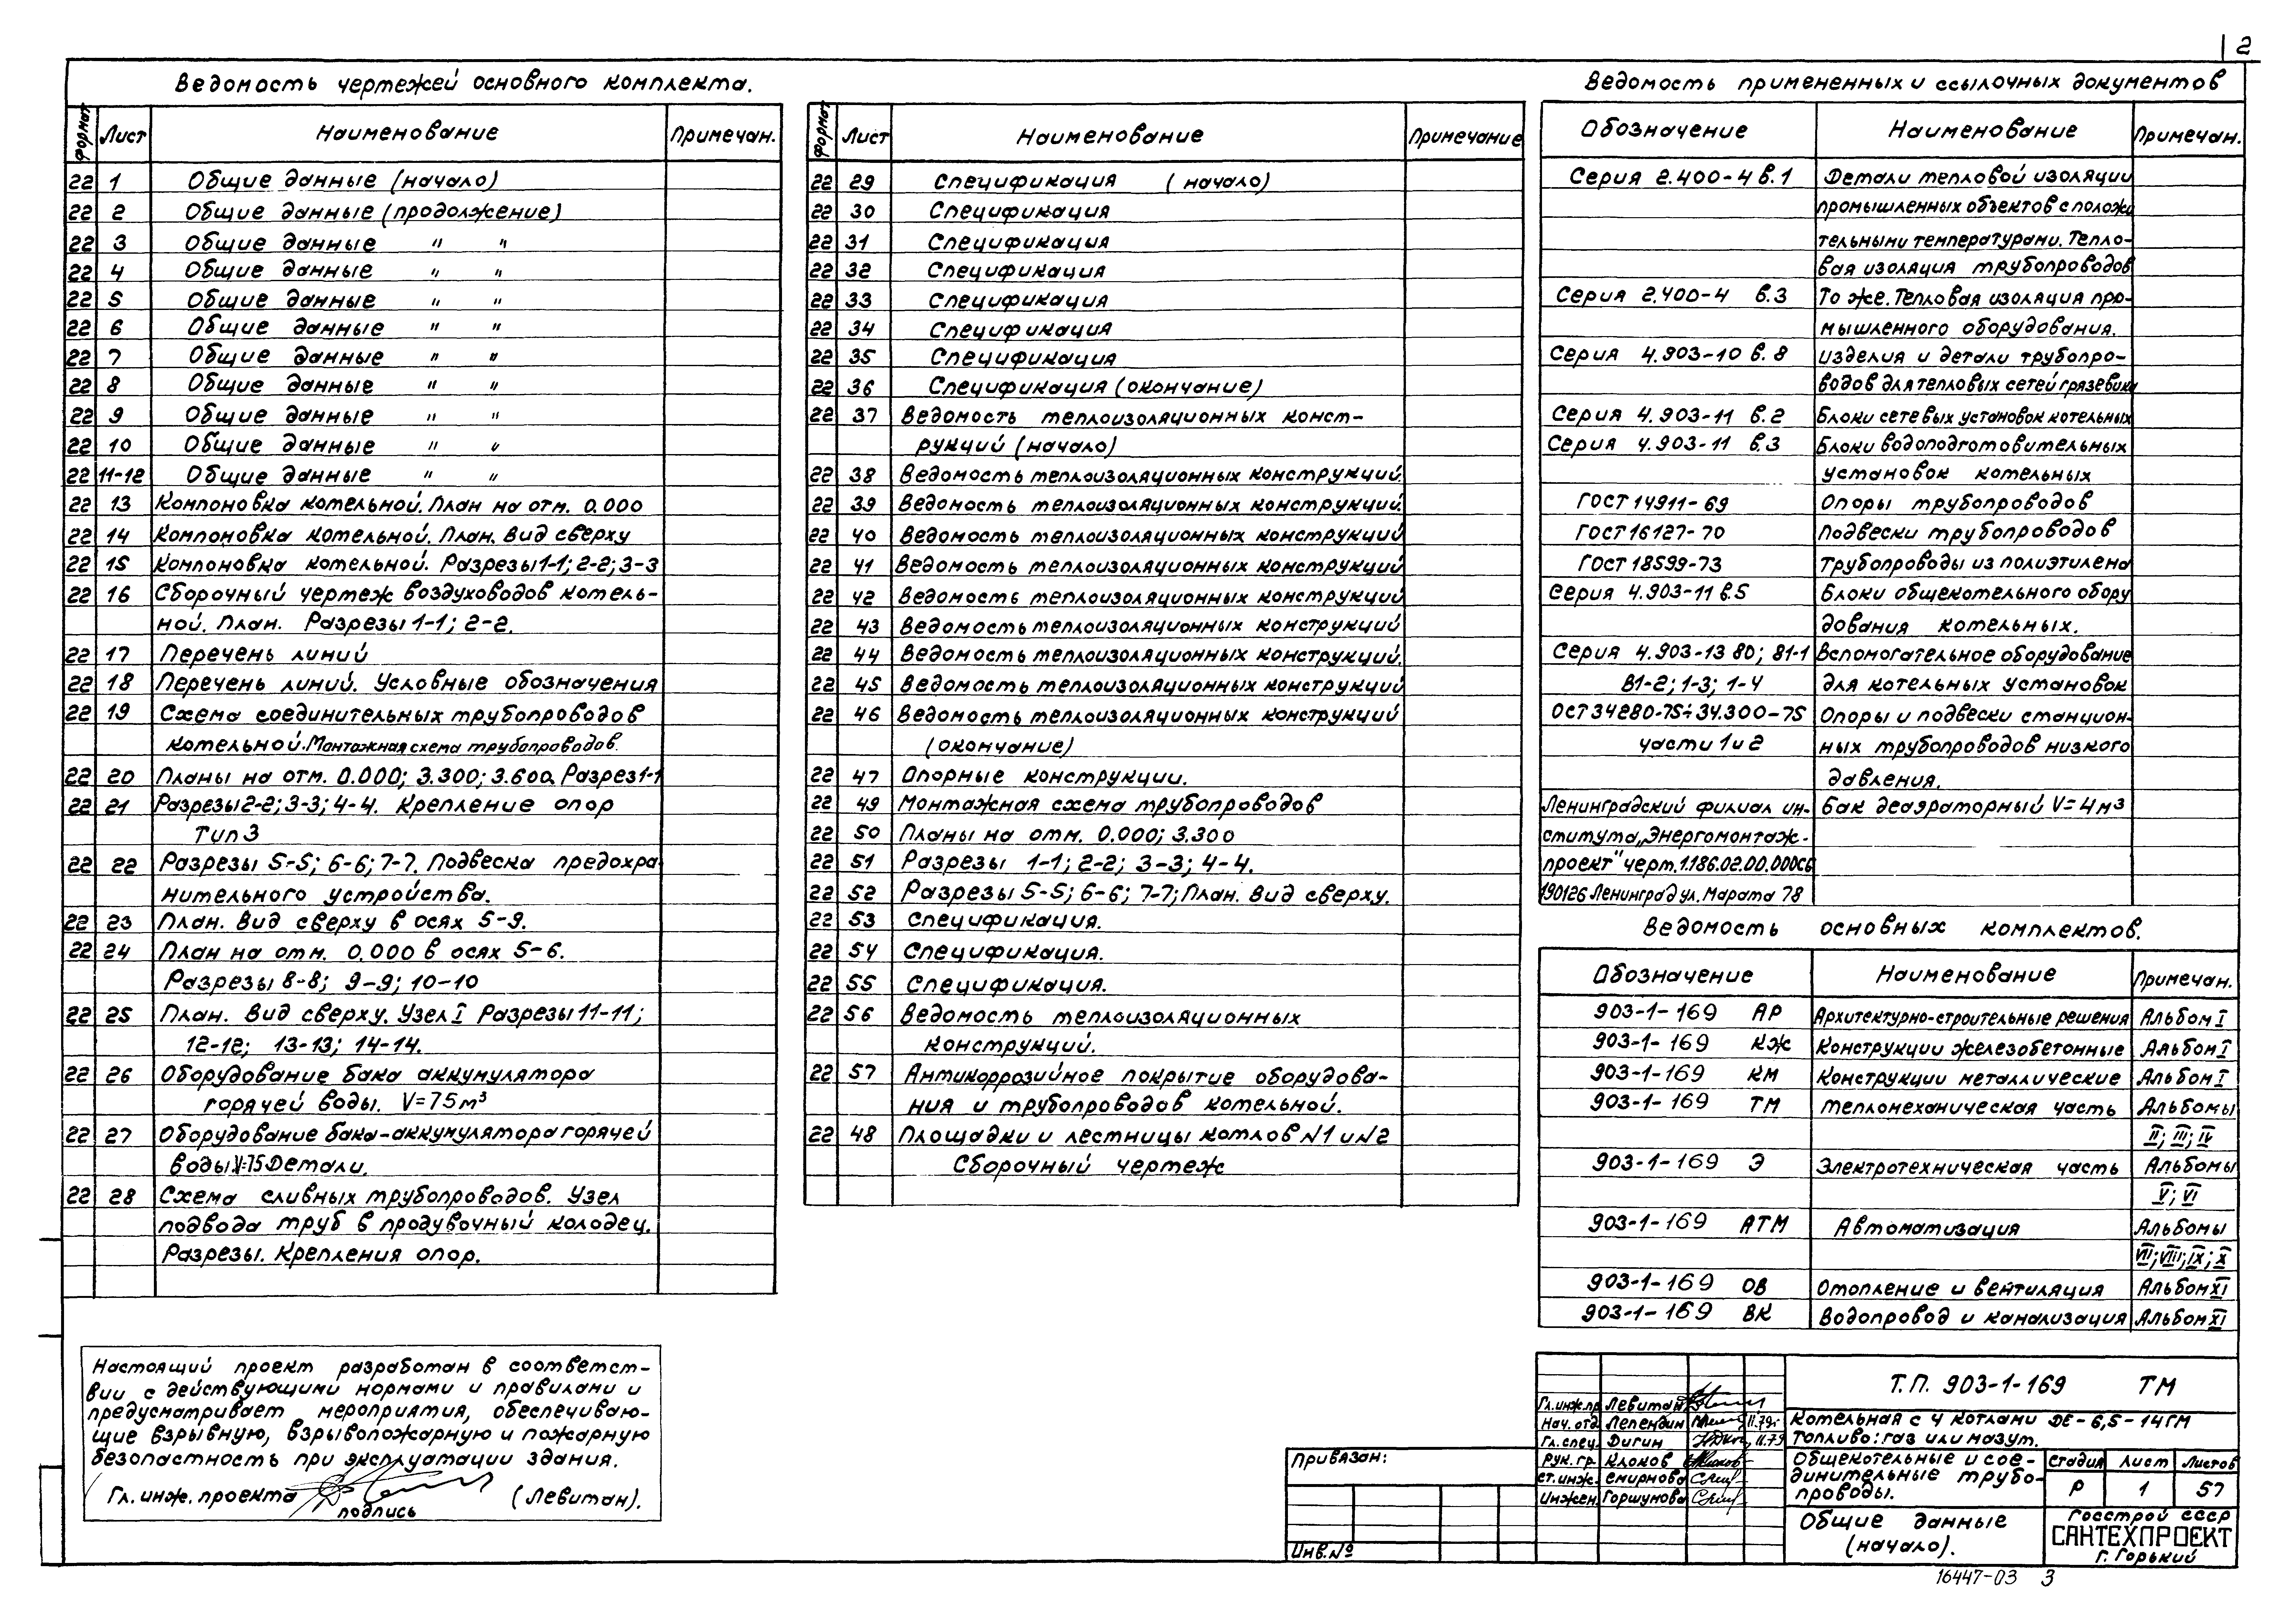 2
Ведомость чертежей основного комплекта.
формат Лист Наименование Примечан.
22 1 Общие данные (начало)
22 2 Общие данные (продолжение)
22 3 Общие данные " "
22 4 Общие данные " "
22 5 Общие данные " "
22 6 Общие данные " "
22 7 Общие данные " "
22 8 Общие данные " "
22 9 Общие данные " "
22 10 Общие данные " "
22 11-12 Общие данные " "
22 13 Компоновка котельной. План на отм. 0.000
22 14 Компоновка котельной. План. Вид сверху
22 15 Компоновка котельной. Разрезы 1-1; 2-2; 3-3
22 16 Сборочный чертеж воздуховодов котель-
ной. План. Разрезы 1-1; 2-2.
22 17 Перечень линий
22 18 Перечень линий. Условные обозначения
22 19 Схема соединительных трубопроводов
котельной. Монтажная схема трубопроводов.
22 20 Планы на отм. 0.000; 3.300; 3.600. Разрез 1-1
22 21 Разрезы 2-2; 3-3; 4-4. Крепление опор
Тип 3
22 22 Разрезы 5-5; 6-6; 7-7. Подвеска предохра
нительного устройства.
22 23 План. Вид сверху в осях 5-9.
22 24 План на отм. 0.000 в осях 5-6.
Разрезы 8-8; 9-9; 10-10
22 25 План. Вид сверху. Узел I Разрезы 11-11;
12-12; 13-13; 14-14.
22 26 Оборудование бака аккумулятора
горячей воды. V=75м³
22 27 Оборудование бака-аккумулятора горячей
воды V-75 Детали.
22 28 Схема сливных трубопроводов. Узел
подвода труб в продувочный колодец.
Разрезы. Крепления опор.
формат Лист Наименование Примечание
22 29 Спецификация (начало)
22 30 Спецификация
22 31 Спецификация
22 32 Спецификация
22 33 Спецификация
22 34 Спецификация
22 35 Спецификация
22 36 Спецификация (окончание)
22 37 Ведомость теплоизоляционных конст-
рукций (начало)
22 38 Ведомость теплоизоляционных конструкций.
22 39 Ведомость теплоизоляционных конструкций.
22 40 Ведомость теплоизоляционных конструкций
22 41 Ведомость теплоизоляционных конструкций
22 42 Ведомость теплоизоляционных конструкций
22 43 Ведомость теплоизоляционных конструкций
22 44 Ведомость теплоизоляционных конструкций.
22 45 Ведомость теплоизоляционных конструкций
22 46 Ведомость теплоизоляционных конструкций
(окончание)
22 47 Опорные конструкции.
22 49 Монтажная схема трубопроводов
22 50 Планы на отм. 0.000; 3.300
22 51 Разрезы 1-1; 2-2; 3-3; 4-4.
22 52 Разрезы 5-5; 6-6; 7-7; План. Вид сверху.
22 53 Спецификация.
22 54 Спецификация.
22 55 Спецификация.
22 56 Ведомость теплоизоляционных
конструкций.
22 57 Антикоррозийное покрытие оборудова-
ния и трубопроводов котельной.
22 48 Площадки и лестницы котлов N1 и N2
Сборочный чертеж
Ведомость примененных и ссылочных документов
Обозначение Наименование Примечан.
Серия 2.400-4 в.1 Детали тепловой изоляции
промышленных объектов с положи
тельными температурами. Тепло-
вая изоляция трубопроводов
Серия 2.400-4 в.3 То же. Тепловая изоляция про-
мышленного оборудования.
Серия 4.903-10 в.8 Изделия и детали трубопро-
водов для тепловых сетей грязевики
Серия 4.903-11 в.2 Блоки сетевых установок котельных
Серия 4.903-11 в.3 Блоки водоподготовительных
установок котельных
ГОСТ 14911-69 Опоры трубопроводов
ГОСТ 16127-70 Подвески трубопроводов
ГОСТ 18599-73 Трубопроводы из полиэтилена
Серия 4.903-11 в.5 Блоки общекотельного обору
дования котельных.
Серия 4.903-13 80; 81-1 Вспомогательное оборудование
В1-2; 1-3; 1-4 для котельных установок
ОСТ 34280-75÷34.300-75 Опоры и подвески станцион-
части 1 и 2 ных трубопроводов низкого
давления.
Ленинградский филиал ин- Бак деаэраторный V=4м³
ститута „Энергомонтаж-
проект" черт. 1.186.02.00.000СБ
190126 Ленинград ул. Марата 78
Ведомость основных комплектов.
Обозначение Наименование Примечан.
903-1-169 АР Архитектурно-строительные решения Альбом I
903-1-169 КЖ Конструкции железобетонные Альбом I
903-1-169 КМ Конструкции металлические Альбом I
903-1-169 ТМ Тепломеханическая часть Альбомы
II; III; IV
903-1-169 Э Электротехническая часть Альбомы
V; VI
903-1-169 АТМ Автоматизация Альбомы
VII; VIII; IX; X
903-1-169 ОВ Отопление и вентиляция Альбом XI
903-1-169 ВК Водопровод и канализация Альбом XI
Настоящий проект разработан в соответст-
вии с действующими нормами и правилами и
предусматривает мероприятия, обеспечиваю-
щие взрывную, взрывопожарную и пожарную
безопастность при эксплуатации здания.
Гл. инж. проекта (Левитан).
подпись
Привязан:
Инв. №
Гл. инж. пр Левитан
Нач. отд. Лепендин 11.79г
Гл. спец. Дигин 11.79
Рук. гр. Клоков
Ст. инж. Смирнова
Инжен. Горшунова
Т.П. 903-1-169 ТМ
Котельная с 4 котлами ДЕ-6,5-14ГМ
Топливо: газ или мазут.
Общекотельные и сое-
динительные трубо-
проводы.
Стадия Лист Листов
Р 1 57
Общие данные
(начало).
Госстрой СССР
САНТЕХПРОЕКТ
г. Горький
16447-03 3